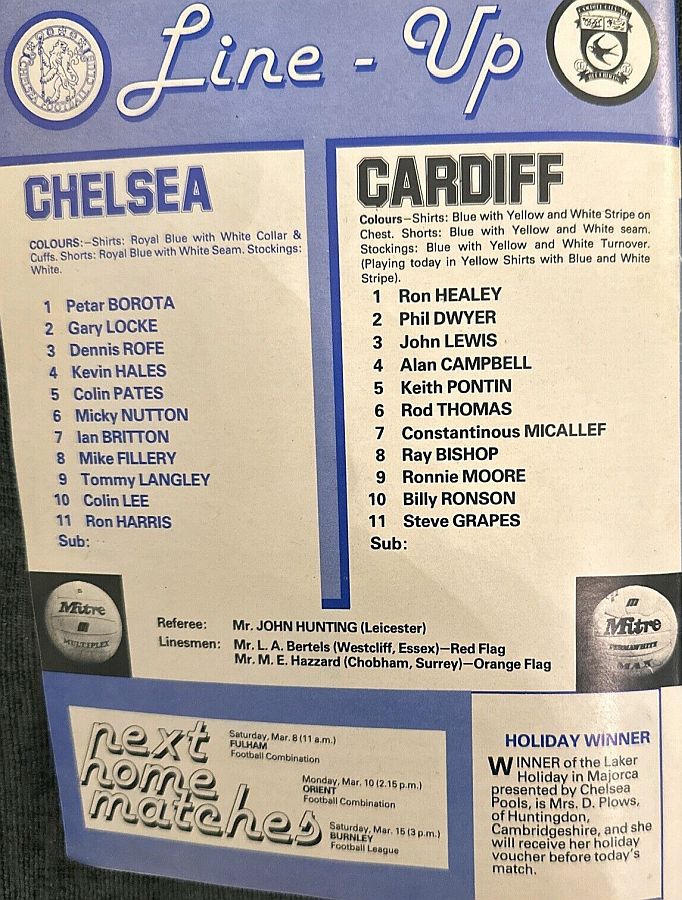 Line - Up
CHELSEA FOOTBALL CLUB
CHELSEA
COLOURS:—Shirts: Royal Blue with White Collar &
Cuffs. Shorts: Royal Blue with White Seam. Stockings:
White.
1 Petar BOROTA
2 Gary LOCKE
3 Dennis ROFE
4 Kevin HALES
5 Colin PATES
6 Micky NUTTON
7 Ian BRITTON
8 Mike FILLERY
9 Tommy LANGLEY
10 Colin LEE
11 Ron HARRIS
Sub:
CARDIFF
Colours—Shirts: Blue with Yellow and White Stripe on
Chest. Shorts: Blue with Yellow and White seam.
Stockings: Blue with Yellow and White Turnover.
(Playing today in Yellow Shirts with Blue and White
Stripe).
1 Ron HEALEY
2 Phil DWYER
3 John LEWIS
4 Alan CAMPBELL
5 Keith PONTIN
6 Rod THOMAS
7 Constantinous MICALLEF
8 Ray BISHOP
9 Ronnie MOORE
10 Billy RONSON
11 Steve GRAPES
Sub:
Mitre
MULTIPLEX
Referee: Mr. JOHN HUNTING (Leicester)
Linesmen: Mr. L. A. Bertels (Westcliff, Essex)—Red Flag
Mr. M. E. Hazzard (Chobham, Surrey)—Orange Flag
Mitre
PERMAWHITE
MAX
next
home
matches
Saturday, Mar. 8 (11 a.m.)
FULHAM
Football Combination
Monday, Mar. 10 (2.15 p.m.)
ORIENT
Football Combination
Saturday, Mar. 15 (3 p.m.)
BURNLEY
Football League
HOLIDAY WINNER
WINNER of the Laker
Holiday in Majorca
presented by Chelsea
Pools, is Mrs. D. Plows,
of Huntingdon,
Cambridgeshire, and she
will receive her holiday
voucher before today's
match.